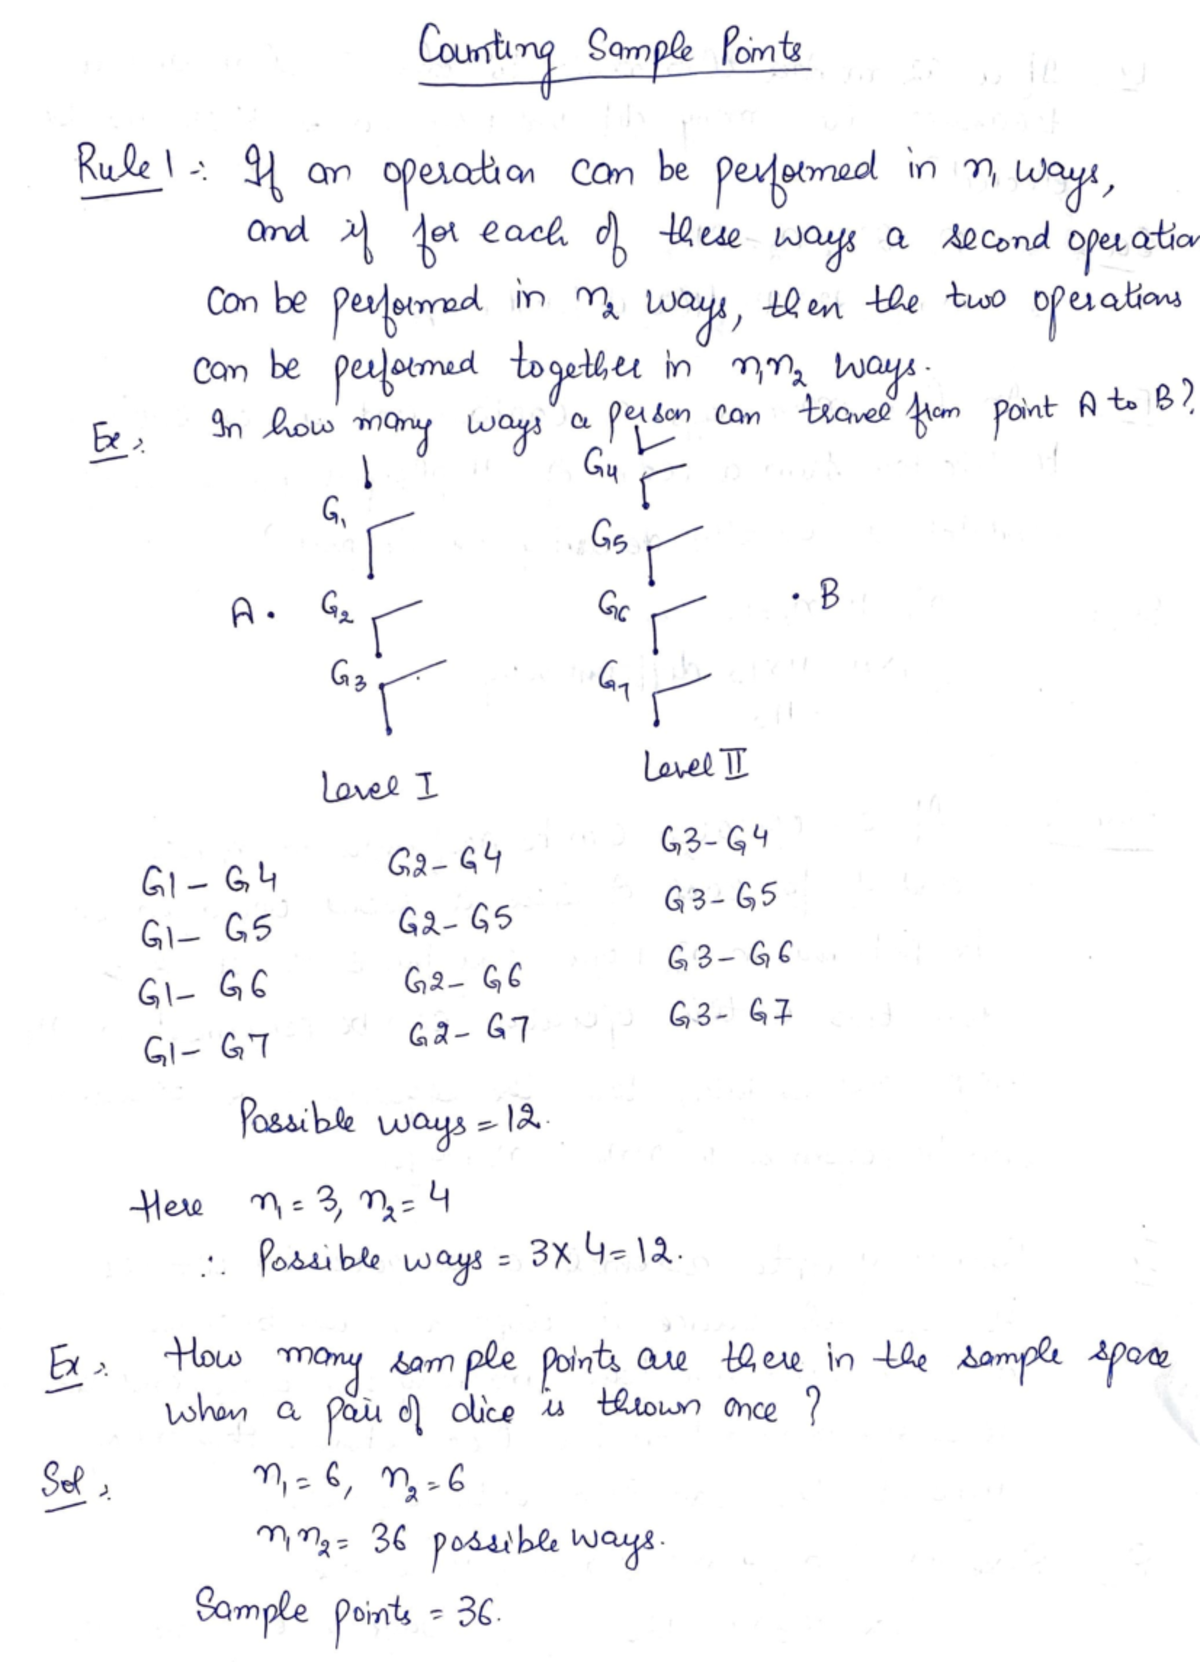 Counting Sample Points
Rule 1 :- If an operation can be performed in n₁ ways,
and if for each of these ways a second operation
can be performed in n₂ ways, then the two operations
can be performed together in n₁n₂ ways.
Ex :- In how many ways a person can travel from point A to B?
G₄
G₁
G₅
A . G₂ G₆ . B
G₃ G₇
Level I Level II
G1 – G4 G2 – G4 G3 – G4
G1 – G5 G2 – G5 G3 – G5
G1 – G6 G2 – G6 G3 – G6
G1 – G7 G2 – G7 G3 – G7
Possible ways = 12.
Here n₁ = 3, n₂ = 4
∴ Possible ways = 3 x 4 = 12.
Ex :- How many sample points are there in the sample space
when a pair of dice is thrown once ?
Sol :- n₁ = 6, n₂ = 6
n₁n₂ = 36 possible ways.
Sample points = 36.